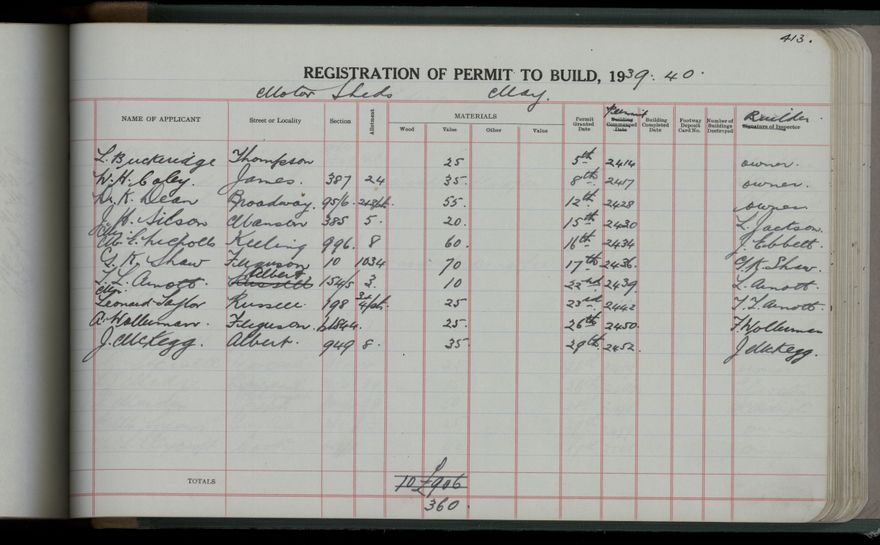 413.
REGISTRATION OF PERMIT TO BUILD, 1939.40.
Motor Sheds May.
NAME OF APPLICANT Street or Locality Section Allotment MATERIALS Wood Value Other Value Permit Granted Date Permit Building Commenced Date Building Completed Date Footway Deposit Card No. Number of Buildings Destroyed Builder Signature of Inspector
L. Buckeridge Thompson 25 5th 2414 owner.
W. H. Coley. James. 387 24 35. 8th 2417 owner.
K. Dean Broadway. 95/6. 55. 12th 2428 owner
J. H. Wilson 385 5. 20. 15th 2430 L. Jackson.
Nicholls Keeling 996. 8 60. 16th 2434 J. Ebbett.
G. K. Shaw Ferguson 10 1034 70 17th 2436. G. K. Shaw.
T. L. Arnott. Russell Albert 1545 3. 10 22nd 2439 L. Arnott.
Leonard Taylor Russell 198 25 23rd 2442 T. L. Arnott.
A. Holleman. Ferguson. 1844. 25. 26th 2450 Holleman
J. McKegg. Albert. 949 8. 35. 29th 2452. J McKegg.
TOTALS 10 £906
360.